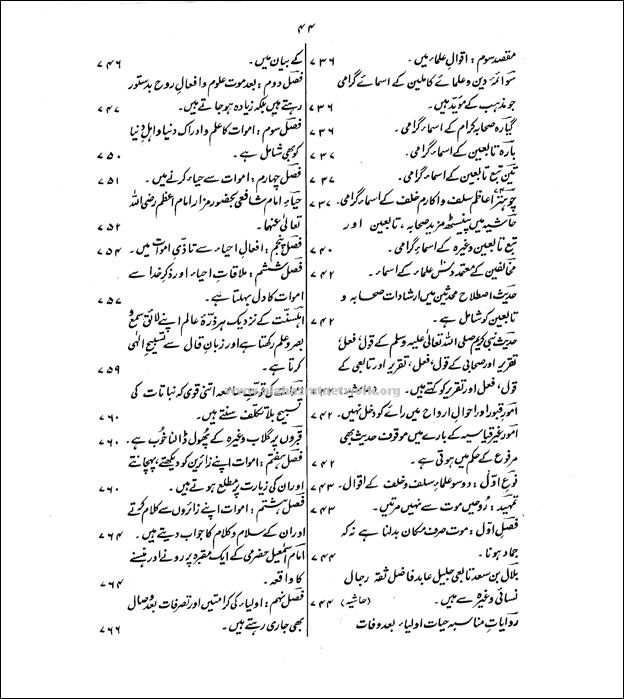 ۴۴
مقصد سوم : اقوالِ علماء میں ۔ ۷۳۶
سو ائمۂ دین و علمائے کاملین کے اسمائے گرامی
جو مذہب کے مؤید ہیں ۔ ۷۳۶
گیارہ صحابہ کرام کے اسماء گرامی ۔ ۷۳۶
بارہ تابعین کے اسماء گرامی ۔ ۷۳۷
تین تبع تابعین کے اسماء گرامی ۔ ۷۳۷
چوہتر اعاظم سلف و اکارم خلف کے اسماء گرامی ۔ ۷۳۷
حاشیہ میں پینسٹھ مزید صحابہ ، تابعین اور
تبع تابعین وغیرہ کے اسماء گرامی ۔ ۷۴۰
مخالفین کے معتمد دس علماء کے اسماء ۔ ۷۴۲
حدیث اصطلاح محدثین میں ارشادات صحابہ و
تابعین کو شامل ہے ۔ ۷۴۲
حدیث نبی کریم صلی اللہ تعالیٰ علیہ وسلم کے قول ، فعل ،
تقریر اور صحابی کے قول ، فعل ، تقریر اور تابعی کے
قول ، فعل اور تقریر کو کہتے ہیں ۔ (حاشیہ)
امور قبور اور احوالِ ارواح میں رائے کو دخل نہیں ۔ ۷۴۲
امور غیر قیاسیہ کے بارے میں موقوف حدیث بھی
مرفوع کے حکم میں ہوتی ہے ۔ ۷۴۲
نوع اوّل : دوسو علماء سلف و خلف کے اقوال ۔ ۷۴۳
تمہید : رُوحیں موت سے نہیں مرتیں ۔ ۷۴۳
فصل اوّل : موت صرف مکان بدلنا ہے نہ کہ
جماد ہونا ۔ ۷۴۴
بلال بن سعد تابعی جلیل عابد فاضل ثقہ رجال
نسائی وغیرہ سے ہیں ۔ (حاشیہ) ۷۴۴
روایاتِ مناسبہ حیات اولیاء بعد وفات
کے بیان میں ۔ ۷۴۶
فصل دوم : بعد موت علوم و افعالِ روح بدستور
رہتے ہیں بلکہ زیادہ ہو جاتے ہیں ۔ ۷۴۷
فصل سوم : اموات کا علم و ادراک دنیا و اہلِ دنیا
کو بھی شامل ہے ۔ ۷۵۰
فصل چہارم : اموات سے حیاء کرنے میں ۔ ۷۵۱
حیاءِ امام شافعی بحضور مزار امام اعظم رضی اللہ
تعالیٰ عنہما ۔ ۷۵۲
فصل پنجم : افعالِ احیاء سے تاذیِ اموات میں ۔ ۷۵۴
فصل ششم : ملاقاتِ احیاء اور ذکرِ خدا سے
اموات کا دل بہلتا ہے ۔ ۷۵۷
اہلسنّت کے نزدیک ہر ذرّۂ عالم اپنے لائق سمع و
بصر و علم رکھتا ہے اور زبانِ قال سے تسبیحِ الٰہی
کرتا ہے ۔ ۷۵۹
اتنی قوی کہ نباتات کی
تسبیح بلا تکلف سنتے ہیں ۔ ۷۶۰
قبروں پر گلاب وغیرہ کے پھول ڈالنا خوب ہے ۔ ۷۶۰
فصل ہفتم : اموات اپنے زائرین کو دیکھتے ، پہچانتے
اور ان کی زیارت پر مطلع ہوتے ہیں ۔ ۷۶۰
فصل ہشتم : اموات اپنے زائروں سے کلام کرتے
اور ان کے سلام و کلام کا جواب دیتے ہیں ۔ ۷۶۴
امام اسمٰعیل حضرمی کے ایک مقبرہ پر رونے اور ہنسنے
کا واقعہ ۔ ۷۶۴
فصل نہم : اولیاء کی کرامتیں اور تصرفات بعد وصال
بھی جاری رہتے ہیں ۔ ۷۶۶